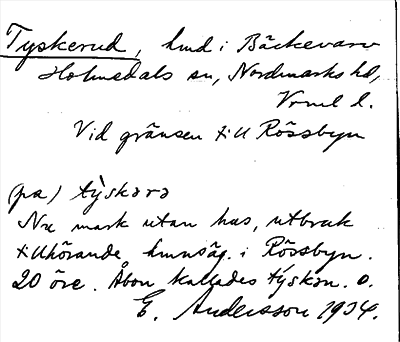 Tyskerud, hmd i Bäckevarv
Holmedals sn, Nordmarks hd,
Vrml l.
Vid gränsen till Rössbyn
(pa) tỳskərə
Nu mark utan hus, utbruk
tillhörande hmnsäg. i Rössbyn.
20 öre. Åbon kallades týskən. o.
E. Andersson 1934.